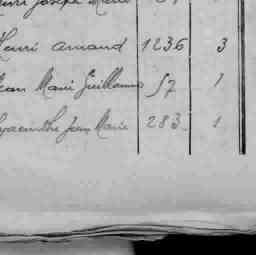 Joseph Marie
Henri Amand 1236 3
Jean Marie Guillaume 57 1
Hyacinthe Jean Marie 283 1